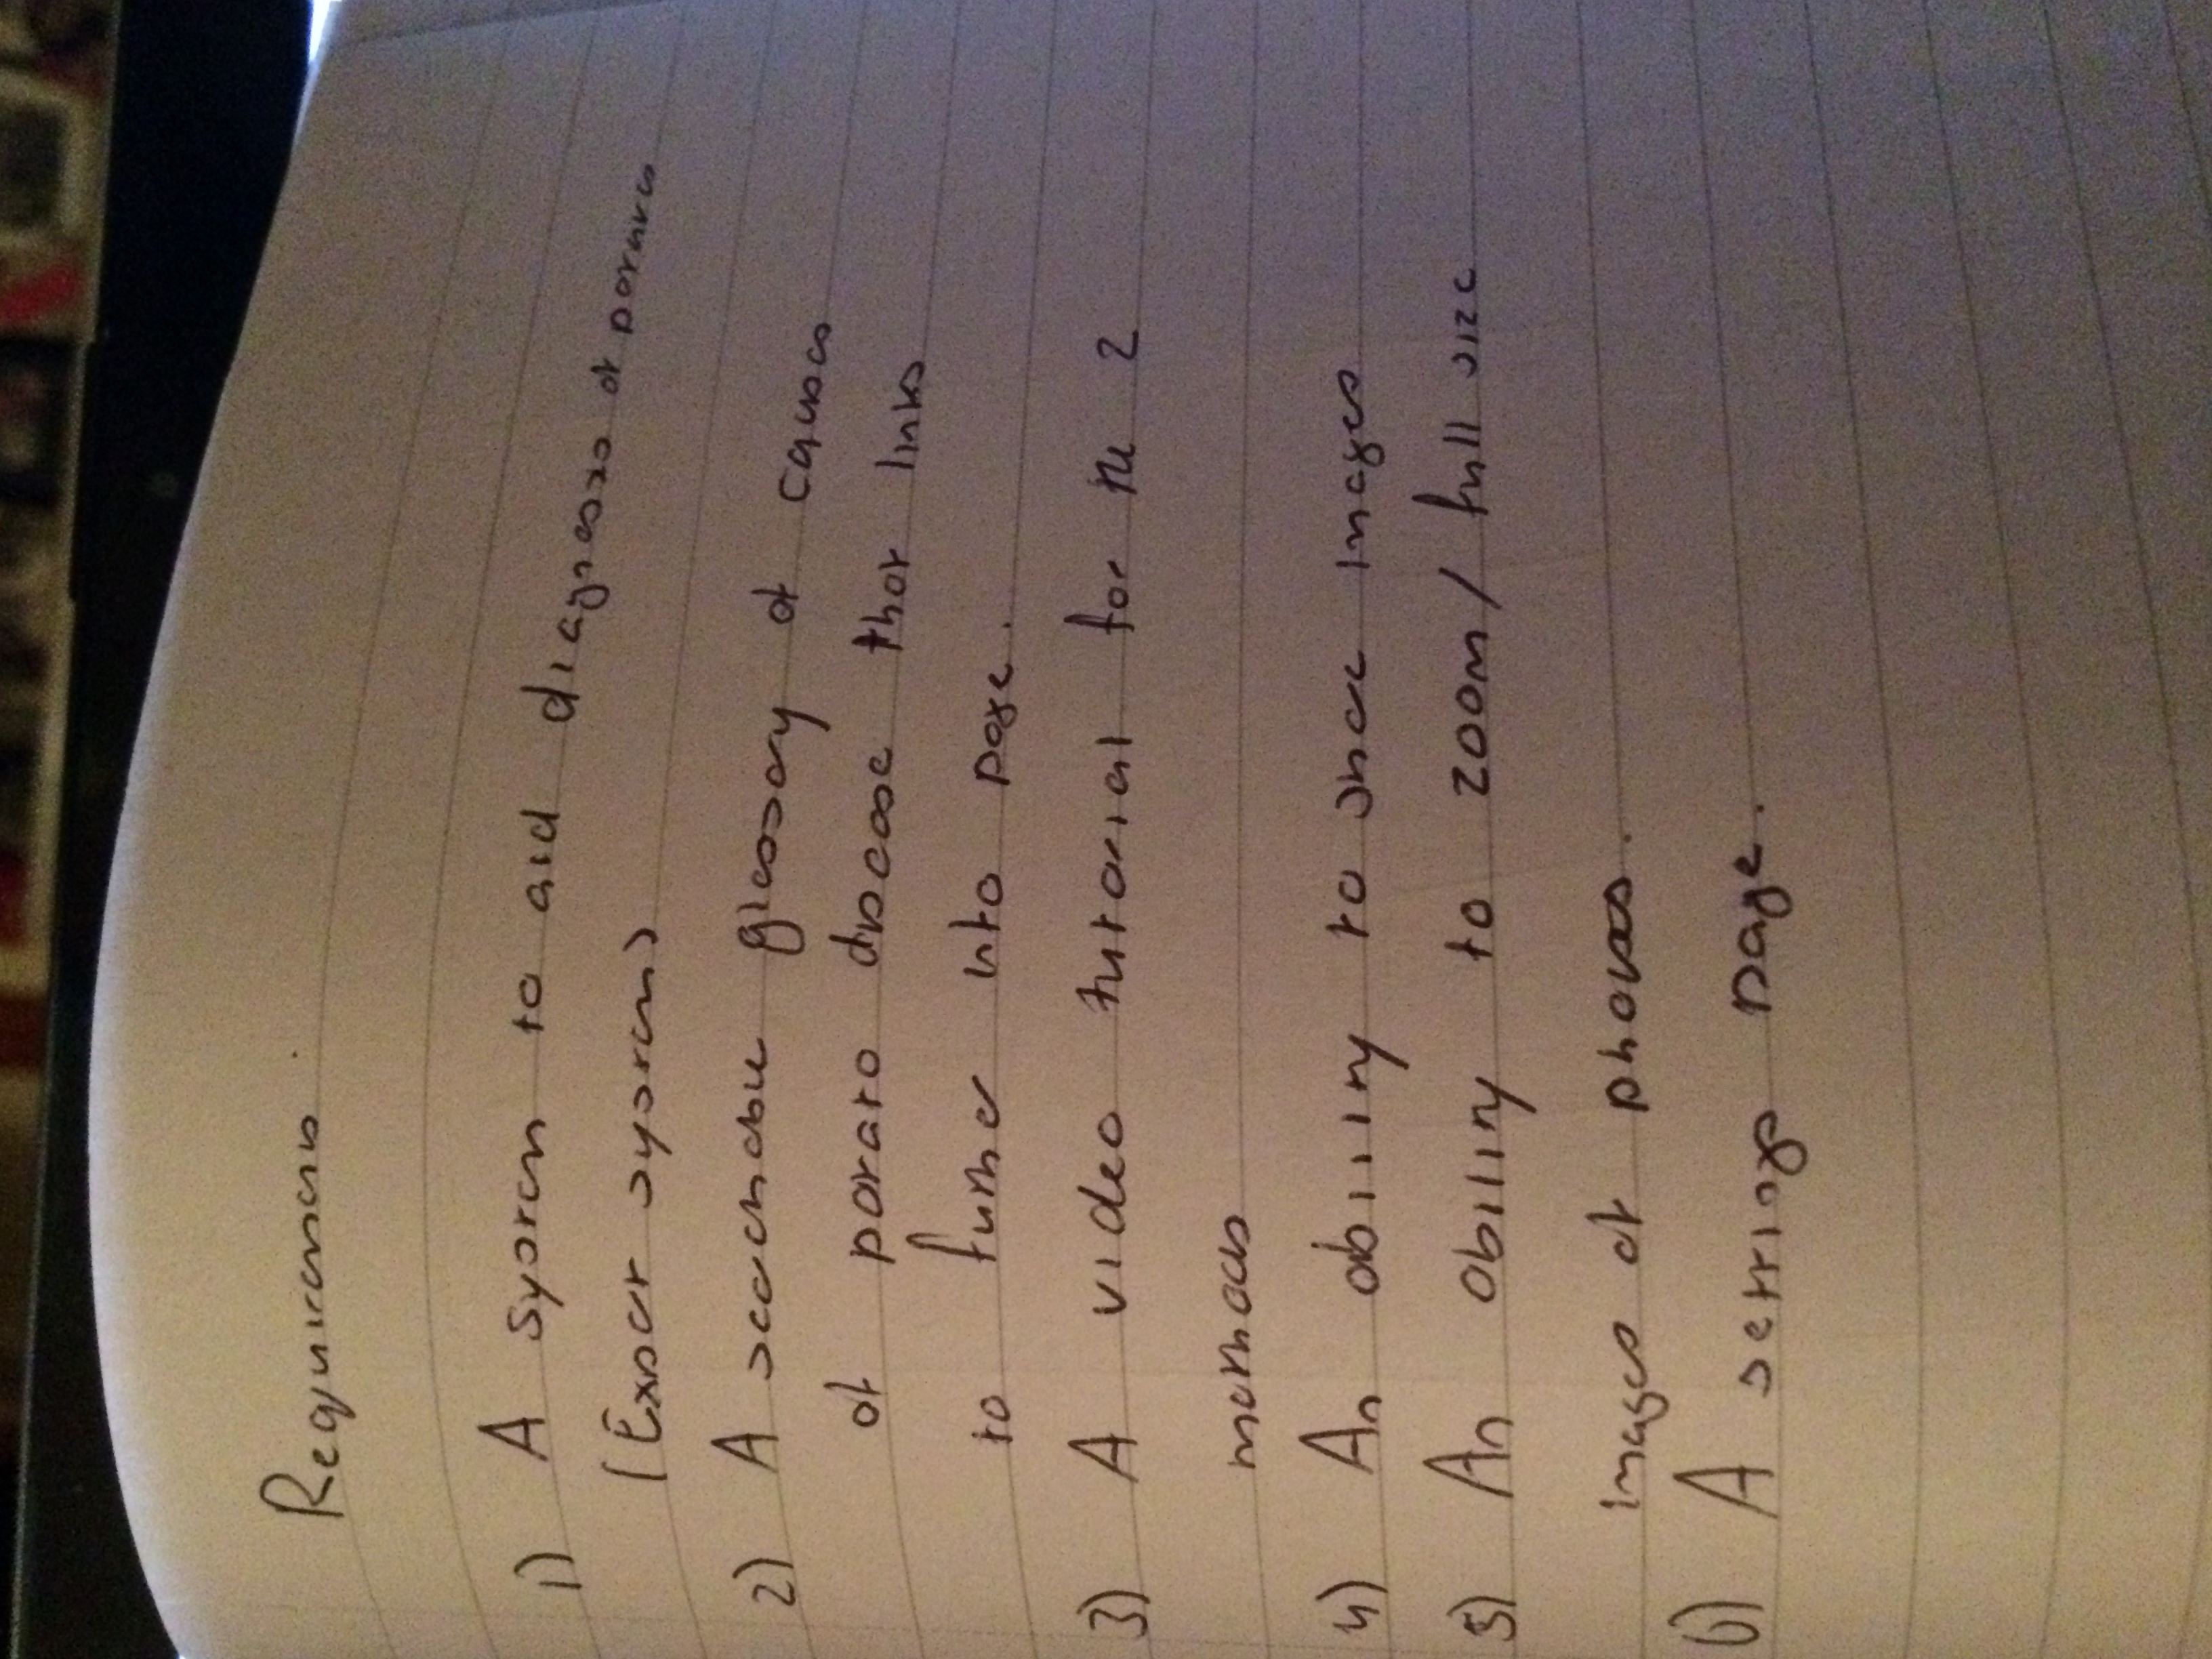 Requirements
1) A system to aid diagnosis of potatoes
(Expert system)
2) A searchable glossary of causes
of potato disease that links
to further info page.
3) A video tutorial for the 2
methods
4) An ability to share images
5) An ability to zoom / full size
images of photos.
6) A settings page.